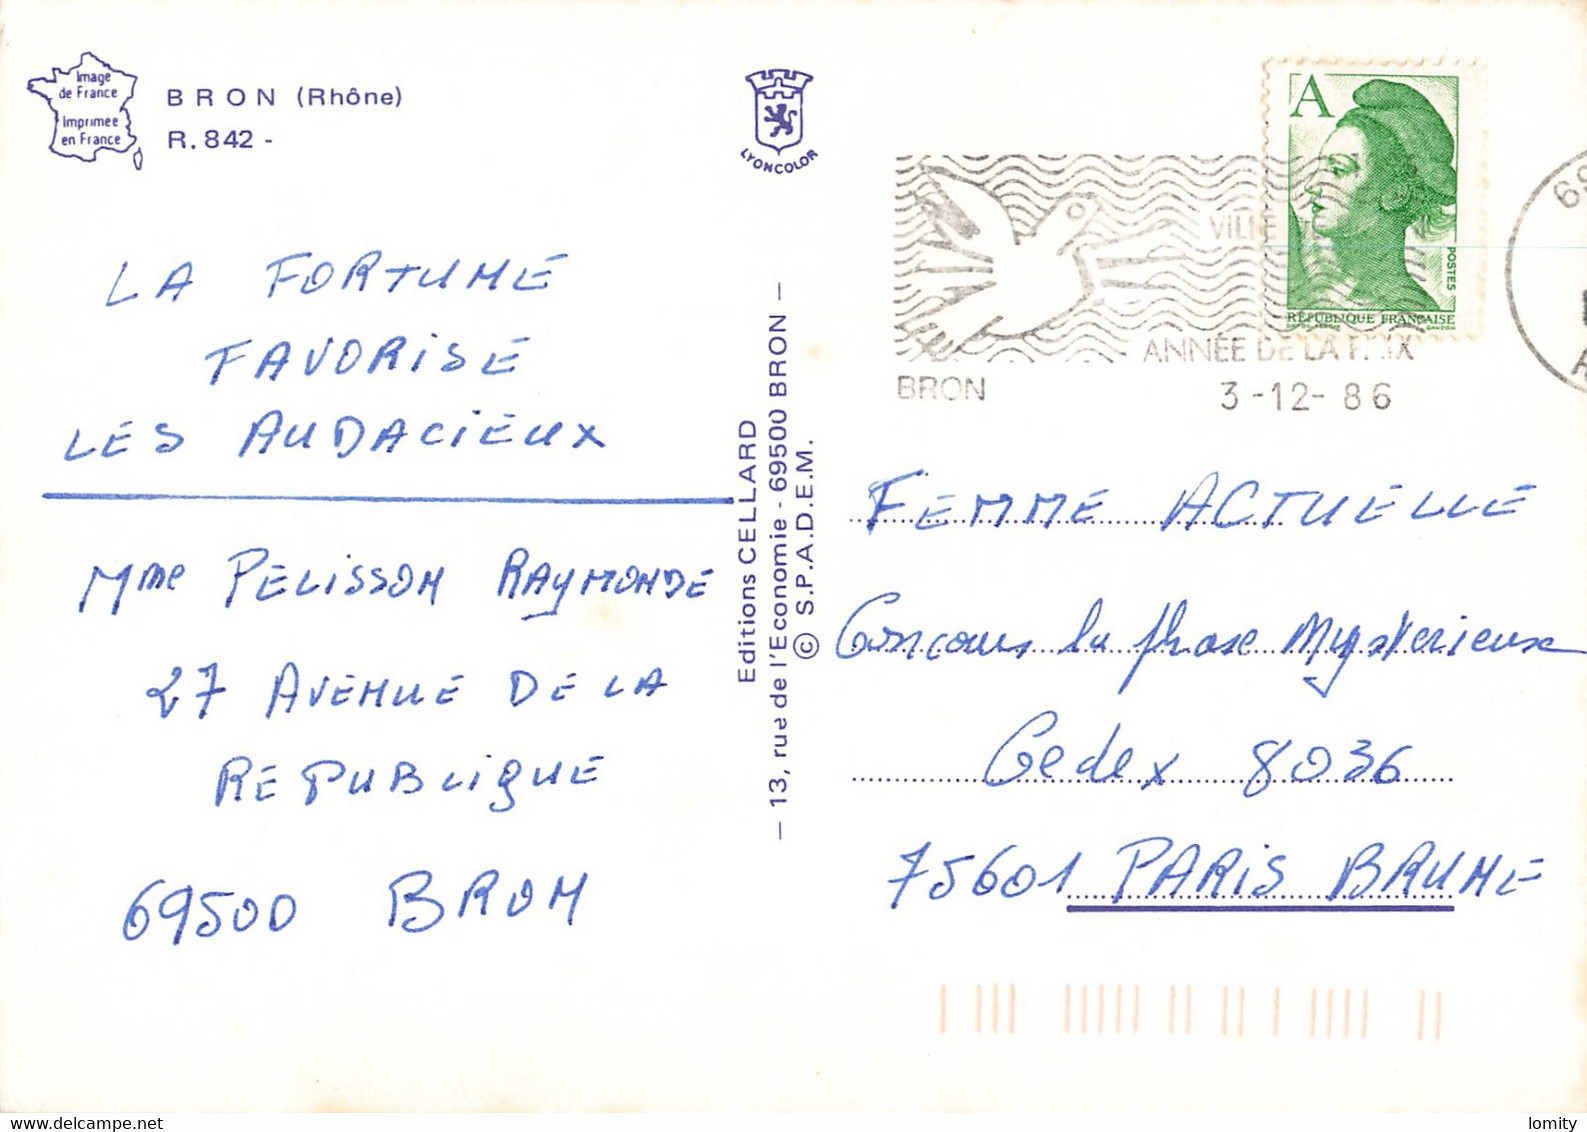 Image
de France
Imprimée
en France
BRON (Rhône)
R. 842 -
LYONCOLOR
LA FORTUNE
FAVORISE
LES AUDACIEUX
Mme PELISSON RAYMONDE
27 AVENUE DE LA
REPUBLIQUE
69500 BRON
Editions CELLARD
— 13, rue de l'Economie - 69500 BRON —
© S.P.A.D.E.M.
A
POSTES
RÉPUBLIQUE FRANÇAISE
GANDON
ANNÉE DE LA PAIX
BRON
3-12-86
FEMME ACTUELLE
Concours la phrase Mysterieuse
Cedex 8036
75601 PARIS BRUNE
lomity